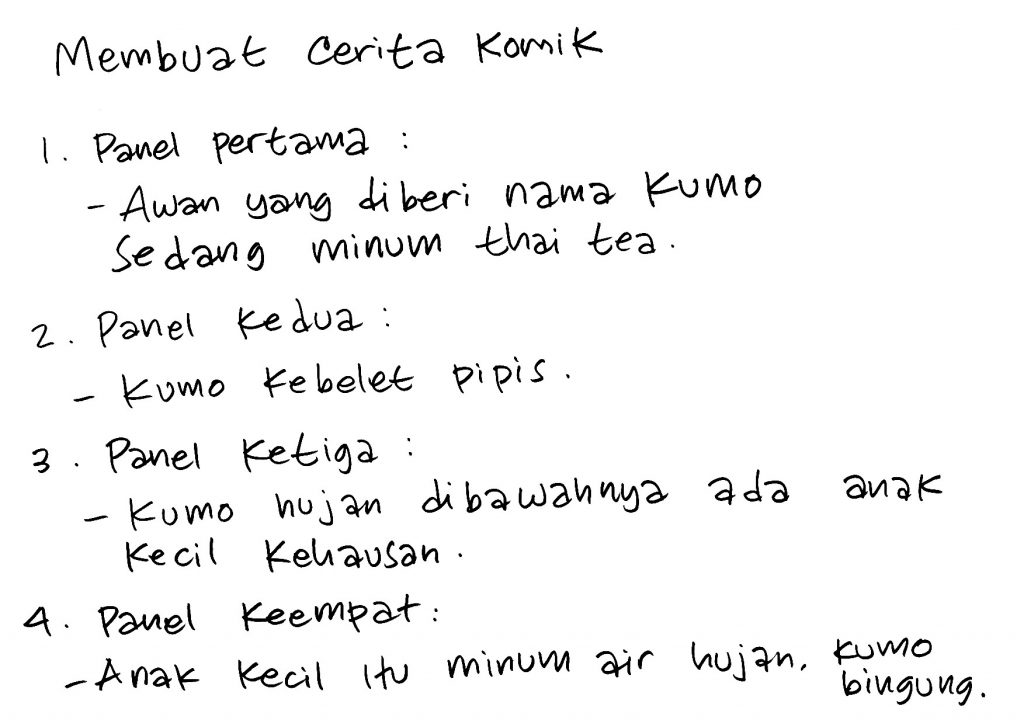 Membuat cerita komik
1. Panel pertama :
- Awan yang diberi nama Kumo
sedang minum thai tea.
2. Panel kedua :
- Kumo kebelet pipis.
3. Panel ketiga :
- Kumo hujan dibawahnya ada anak
kecil kehausan.
4. Panel keempat :
- Anak kecil itu minum air hujan. Kumo
bingung.